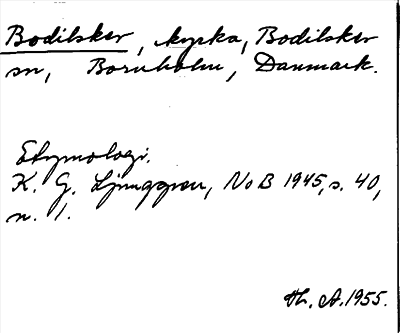 Bodilsker, kyrka, Bodilsker
sn, Bornholm, Danmark.
Etymologi.
K. G. Ljunggren, NoB 1945, s. 40,
n. 1.
Th. A. 1955.